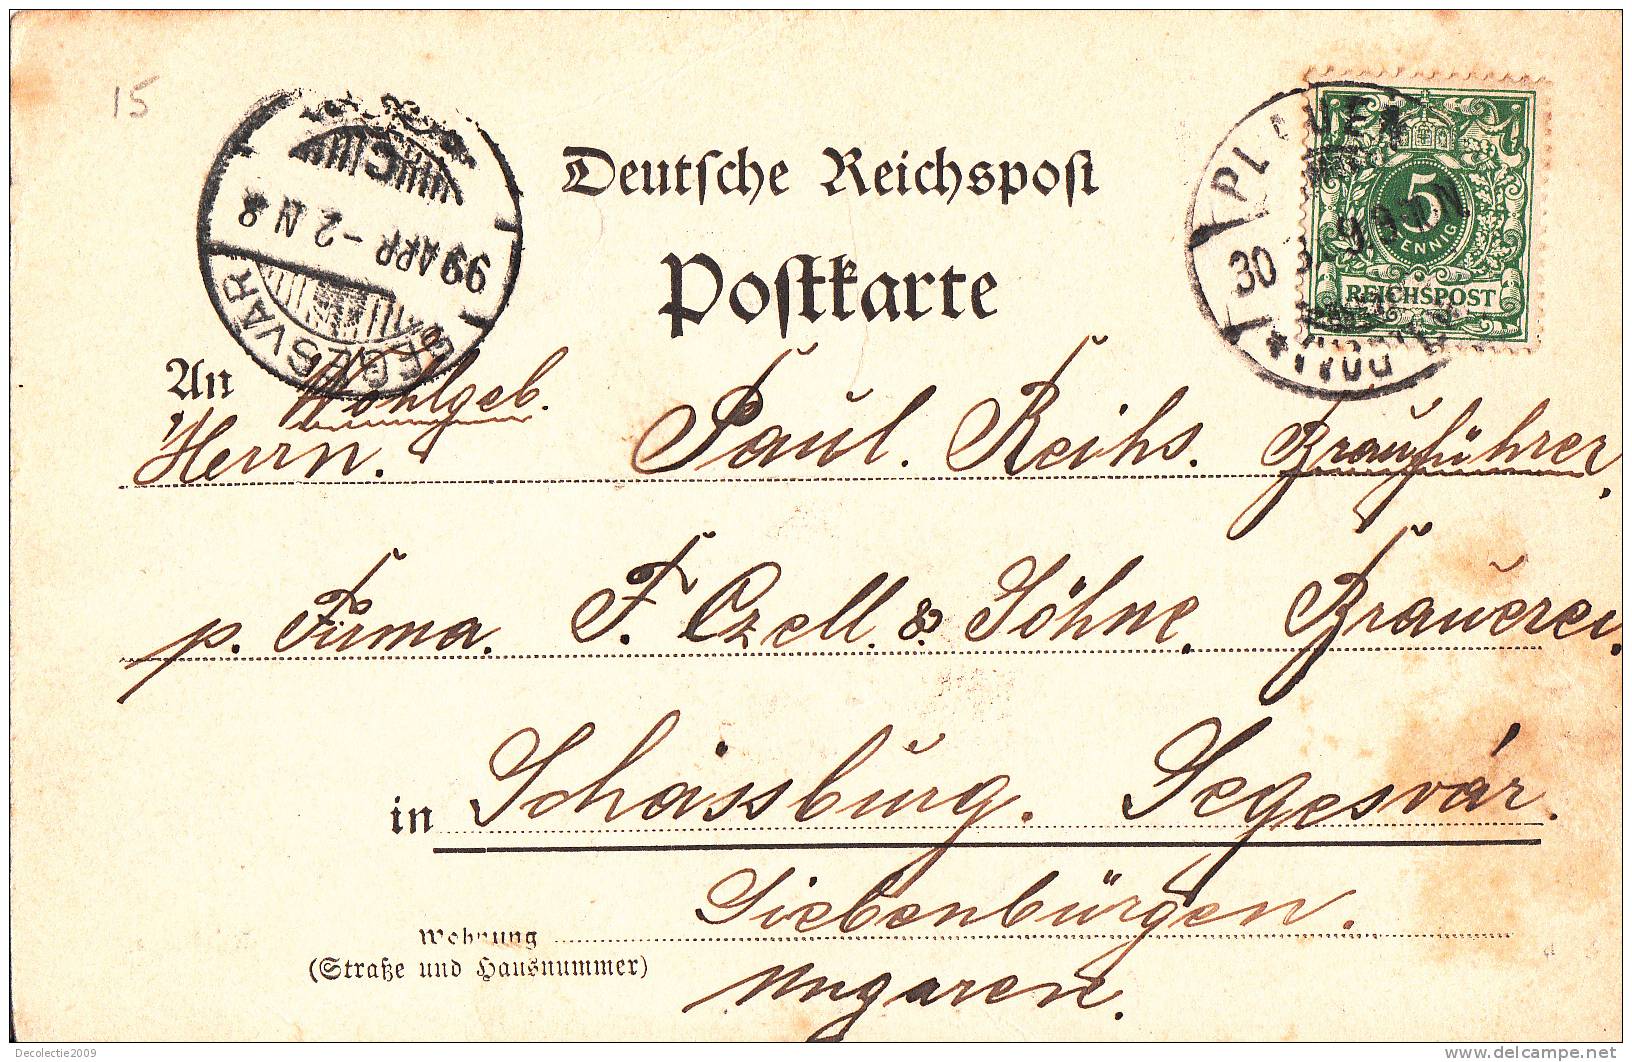 15
Deutsche Reichspost
Postkarte
SEGESVÁR
99 APR -2 N 8
C
PLAUE
30
5
PFENNIG
REICHSPOST
An Wohlgeb.
Herrn. Paul. Reihs. Brauführer,
p. Firma. F. Czell. & Söhne, Brauerei,
in Schässburg. Segesvár.
Siebenbürgen.
Wohnung
(Straße und Hausnummer)
Ungaren.
Decolectie2009
www.delcampe.net